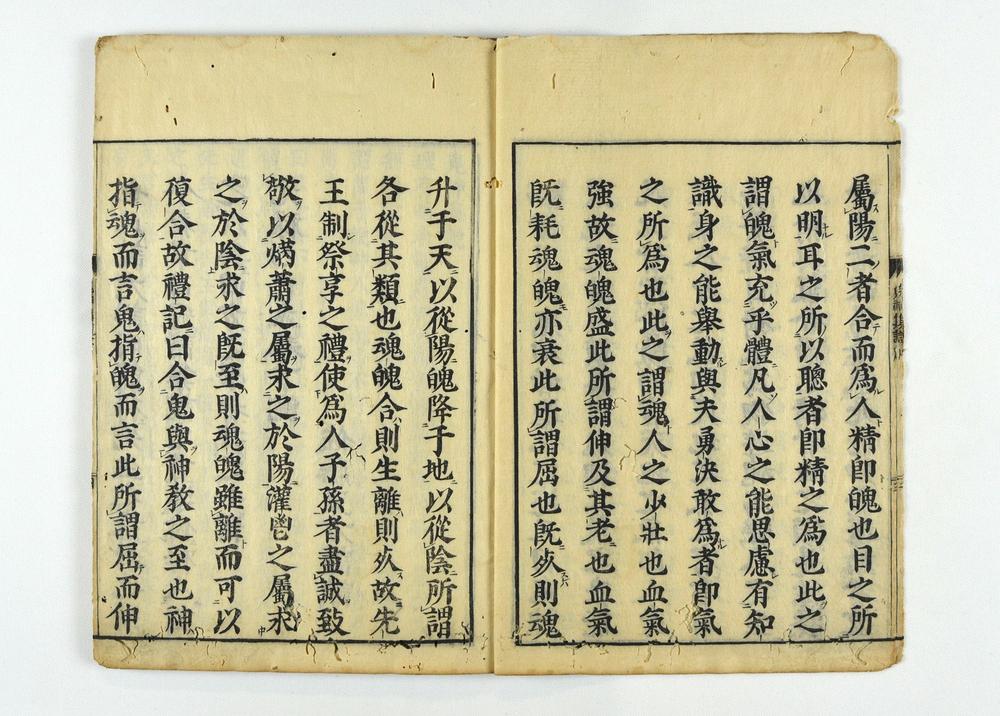 屬陽二者合而爲人精卽魄也目之所
以明耳之所以聰者卽精之爲也此之
謂魄氣充乎體凡人心之能思慮有知
識身之能舉動與夫勇決敢爲者卽氣
之所爲也此之謂魂人之少壯也血氣
強故魂魄盛此所謂伸及其老也血氣
旣耗魂魄亦衰此所謂屈也旣死則魂
升于天以從陽魄降于地以從陰所謂
各從其類也魂魄合則生離則死故先
王制祭享之禮使爲人子孫者盡誠致
敬以焫蕭之屬求之於陽灌鬯之屬求
之於陰求之旣至則魂魄雖離而可以
復合故禮記曰合鬼與神敎之至也神
指魂而言鬼指魄而言此所謂屈而伸